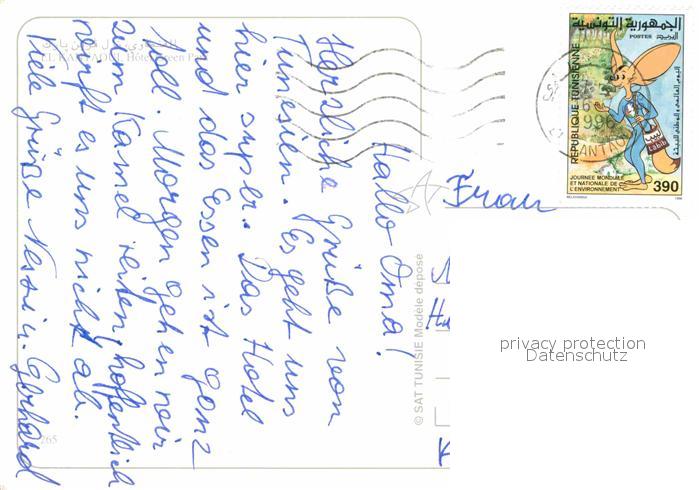 Hallo Oma!
Herzliche Grüße von
Tunesien. Es geht uns
hier super. Das Hotel
und das Essen ist ganz
toll. Morgen gehen wir
zum Kamel reiten, hoffentlich
wirft es uns nicht ab.
Viele Grüße Nessi u. Gerhard
EL KANTAOUI, Hôtel Green P
265
© SAT TUNISIE Modèle déposé
Frau
الجمهورية التونسية
البريد
POSTES
REPUBLIQUE TUNISIENNE
1996
KANTAOUI
لبيب
Labib
JOURNEE MONDIALE
ET NATIONALE DE
L'ENVIRONNEMENT
390
1996
privacy protection
Datenschutz